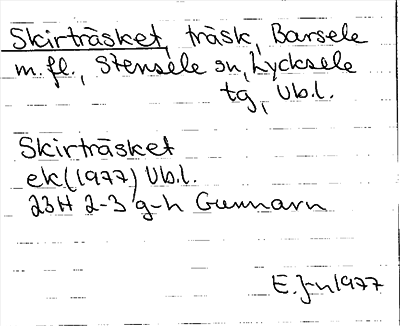 Skirträsket, träsk, Barsele
m.fl., Stensele sn, Lycksele
tg, Vb.l.
Skirträsket
ek (1977) Vb.l.
23H 2-3 g-h Gunnarn
E.J-n 1977